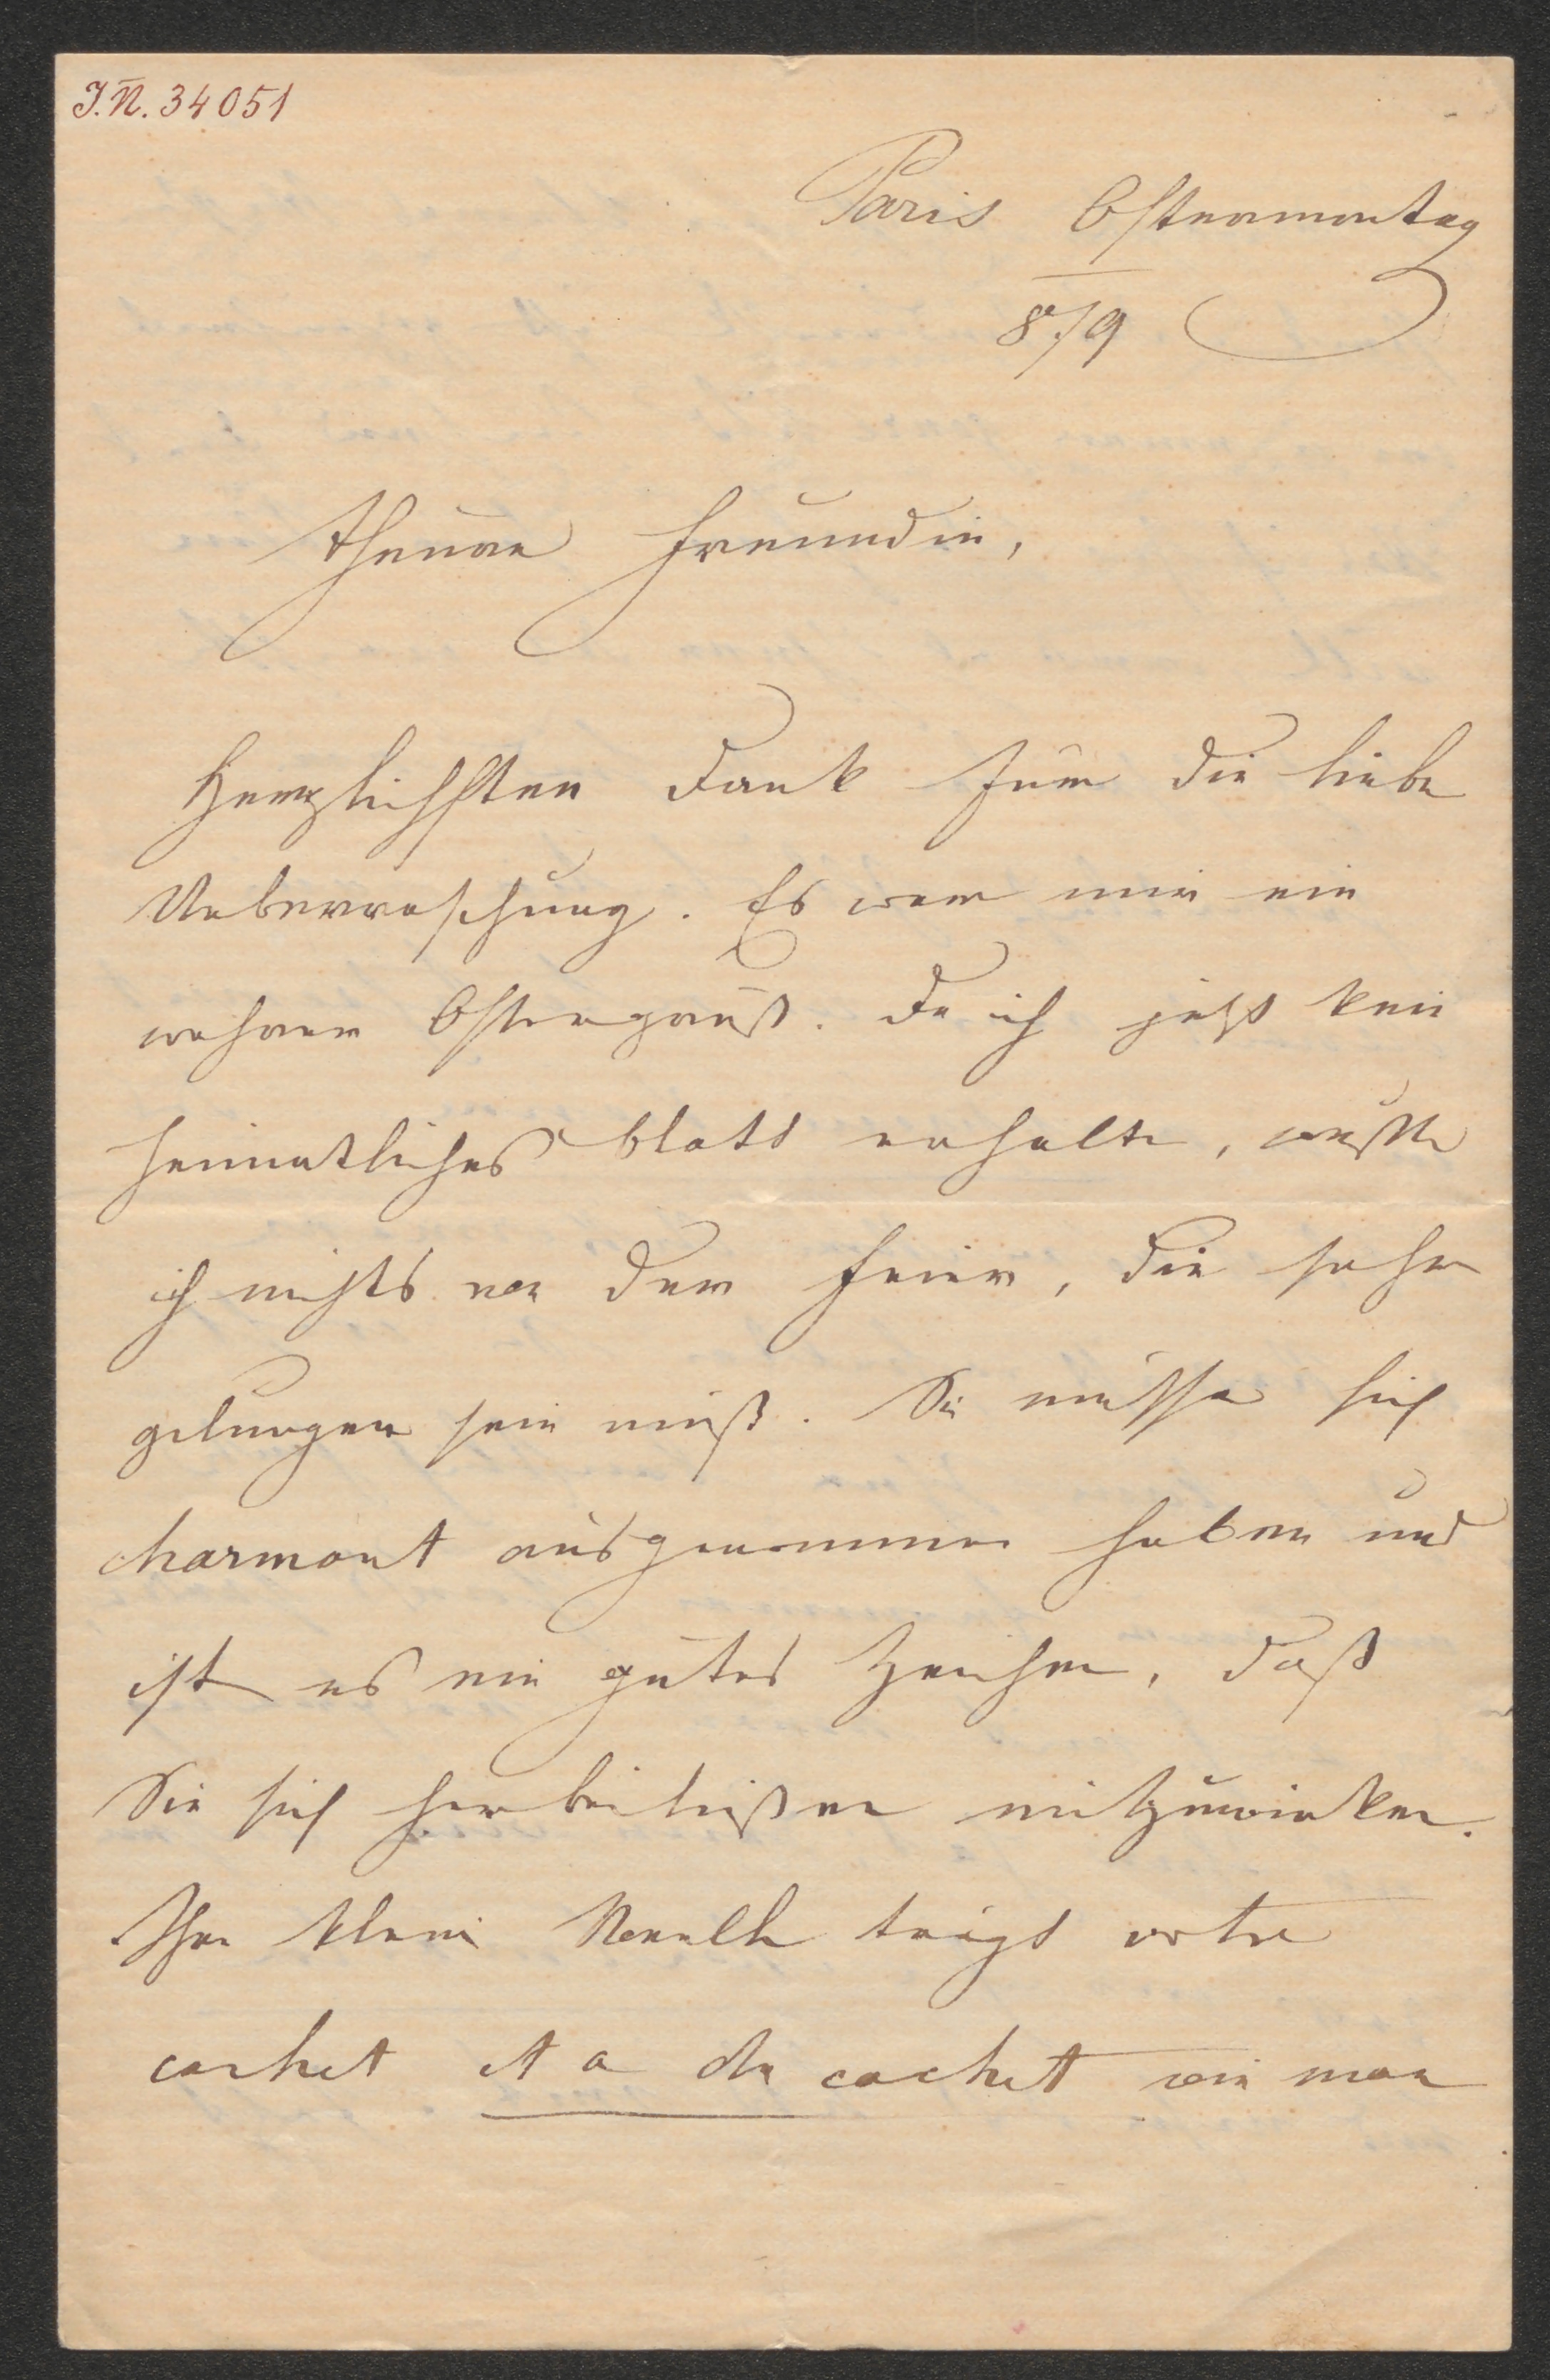 I.N. 34051
Paris Ostermontag
879
Theure Freundin,
Herzlichsten Dank für die liebe
Ueberraschung. Es war mir ein
wahrer Ostergruß. Da ich jetzt kein
heimatliches Blatt erhalte, wußte
ich nichts von der Feier, die sehr
gelungen sein muß. Sie müssen sich
charmant ausgenommen haben und
ist es ein gutes Zeichen, daß
Sie sich herbeiließen mitzuwirken.
Ihre kleine Novelle trägt votre
cachet et a du cachet wie man